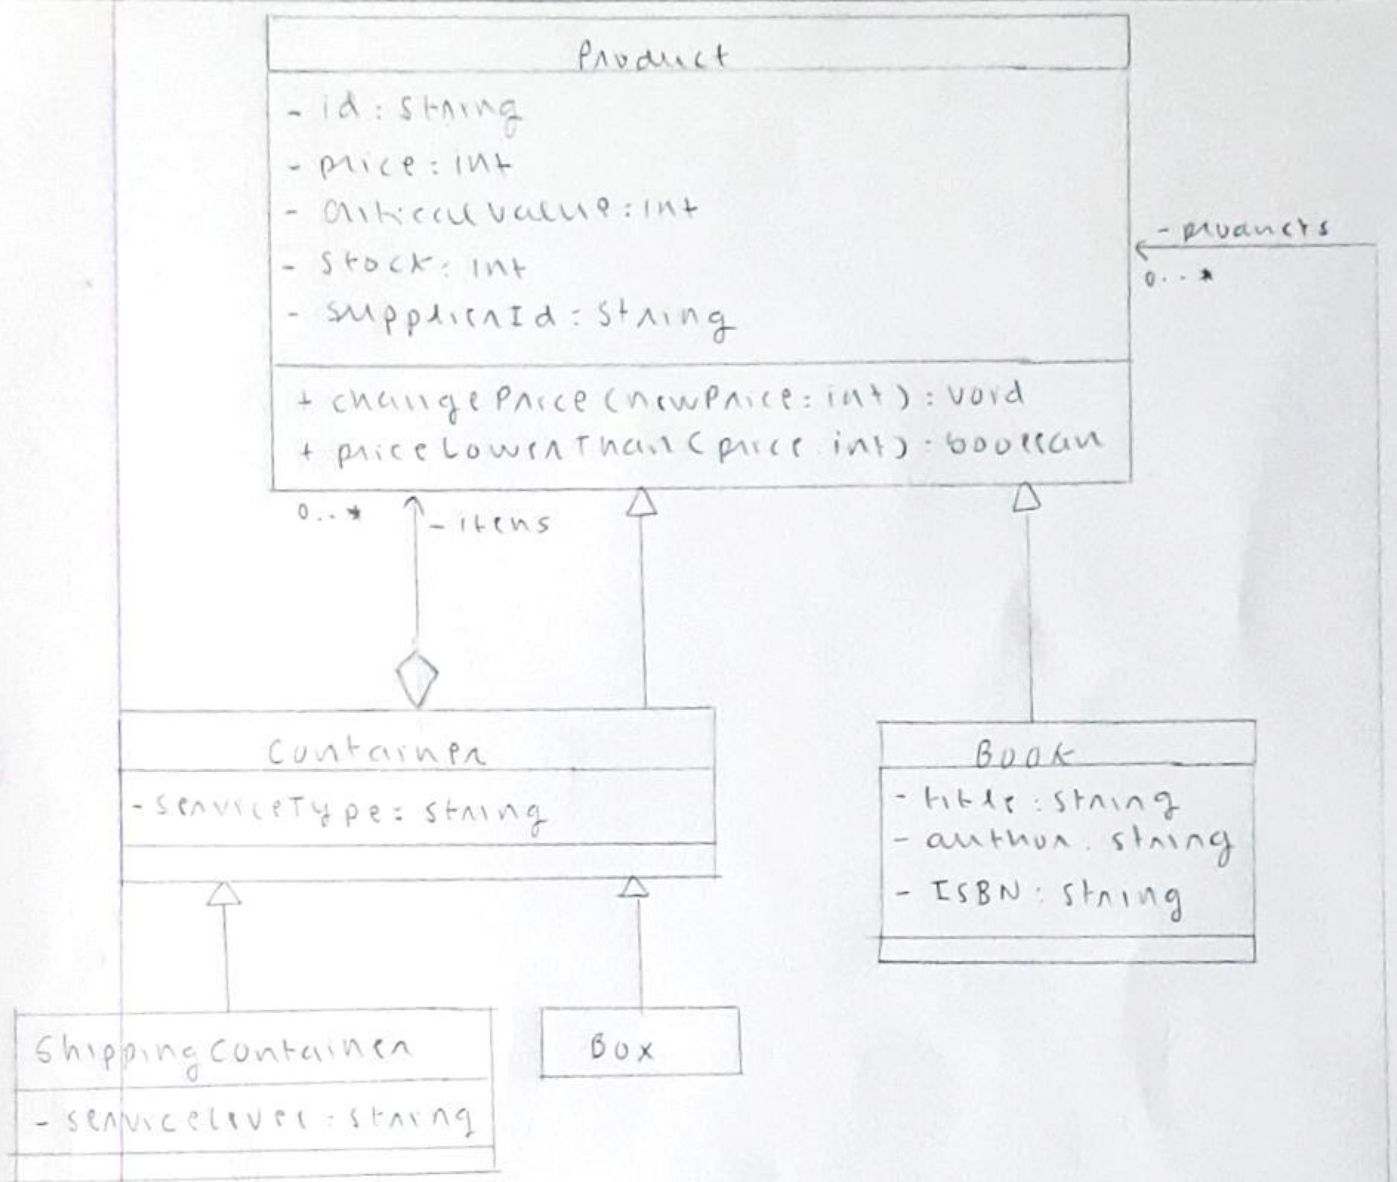 Product
- id : string
- price : int
- criticalValue : int
- stock : int
- supplierId : string
+ changePrice (newPrice : int) : void
+ priceLowerThan (price : int) : boolean
- products
0..*
0..*
- itens
Container
- serviceType : string
Book
- title : string
- author : string
- ISBN : string
ShippingContainer
- serviceLevel : string
Box